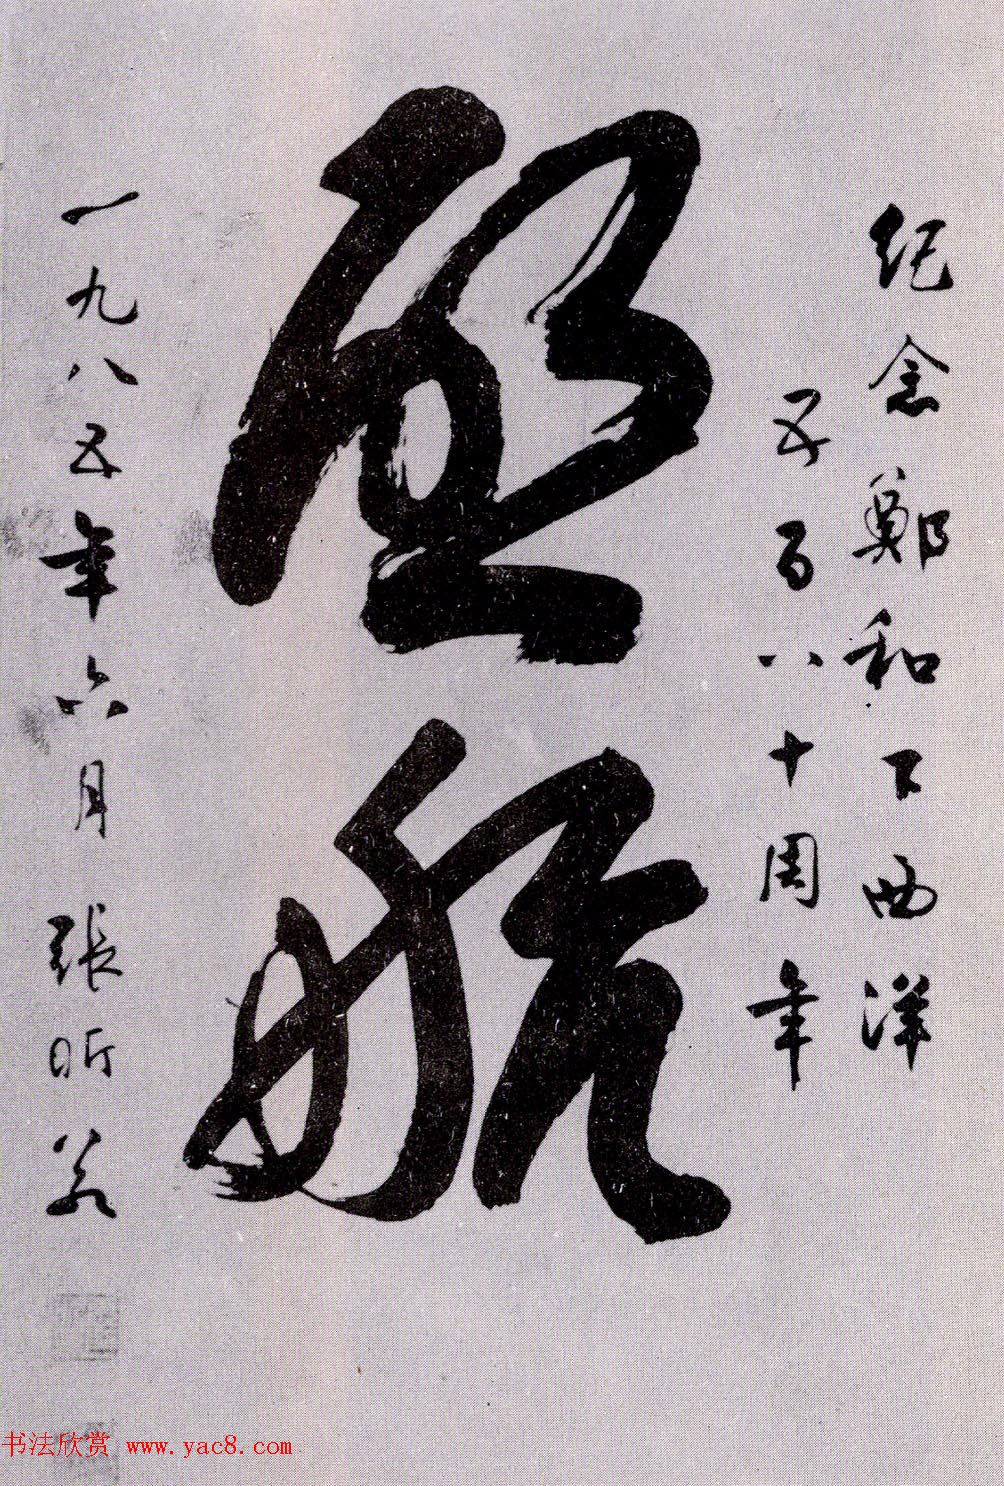 紀念鄭和下西洋
五百八十周年
啟航
一九八五年六月 張昕若
书法欣赏 www.yac8.com